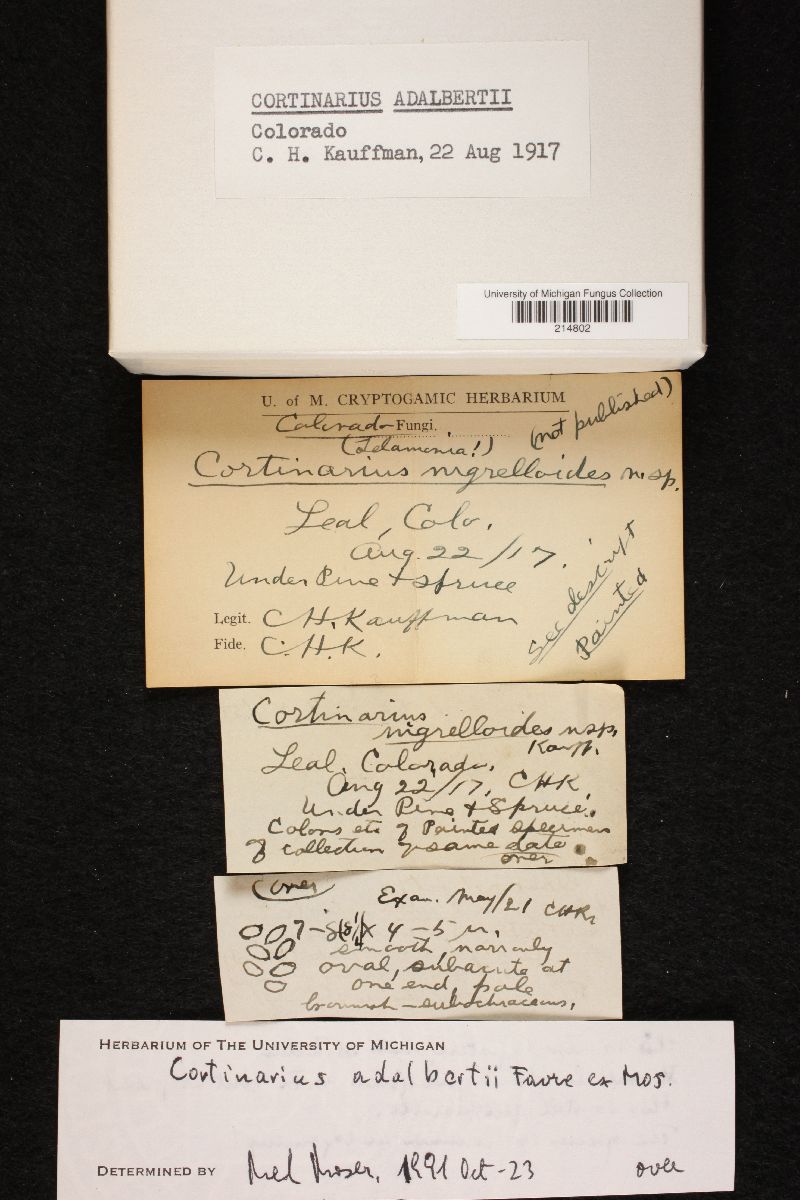 CORTINARIUS ADALBERTII
Colorado
C. H. Kauffman, 22 Aug 1917
University of Michigan Fungus Collection
214802
U. of M. CRYPTOGAMIC HERBARIUM
Colorado Fungi.
(not published)
(Telamonia!)
Cortinarius nigrelloides n.sp.
Leal, Colo.
Aug. 22/17.
Under Pine + Spruce
See descript
Painted
Legit. C.H. Kauffman
Fide. C.H.K.
Cortinarius
nigrelloides n.sp.
Kauff.
Leal, Colorado.
Aug 22/17, CHK.
Under Pine + Spruce.
Colors etc of Painted specimen
of collection of same date.
over
(over)
Exam. May/21 CHK.
7-8(8½)x 4-5 µ,
smooth, narrowly
oval, subacute at
one end, pale
brownish-subochraceous.
HERBARIUM OF THE UNIVERSITY OF MICHIGAN
Cortinarius adalbertii Favre ex Mos.
DETERMINED BY M. Moser, 1991 Oct-23
over